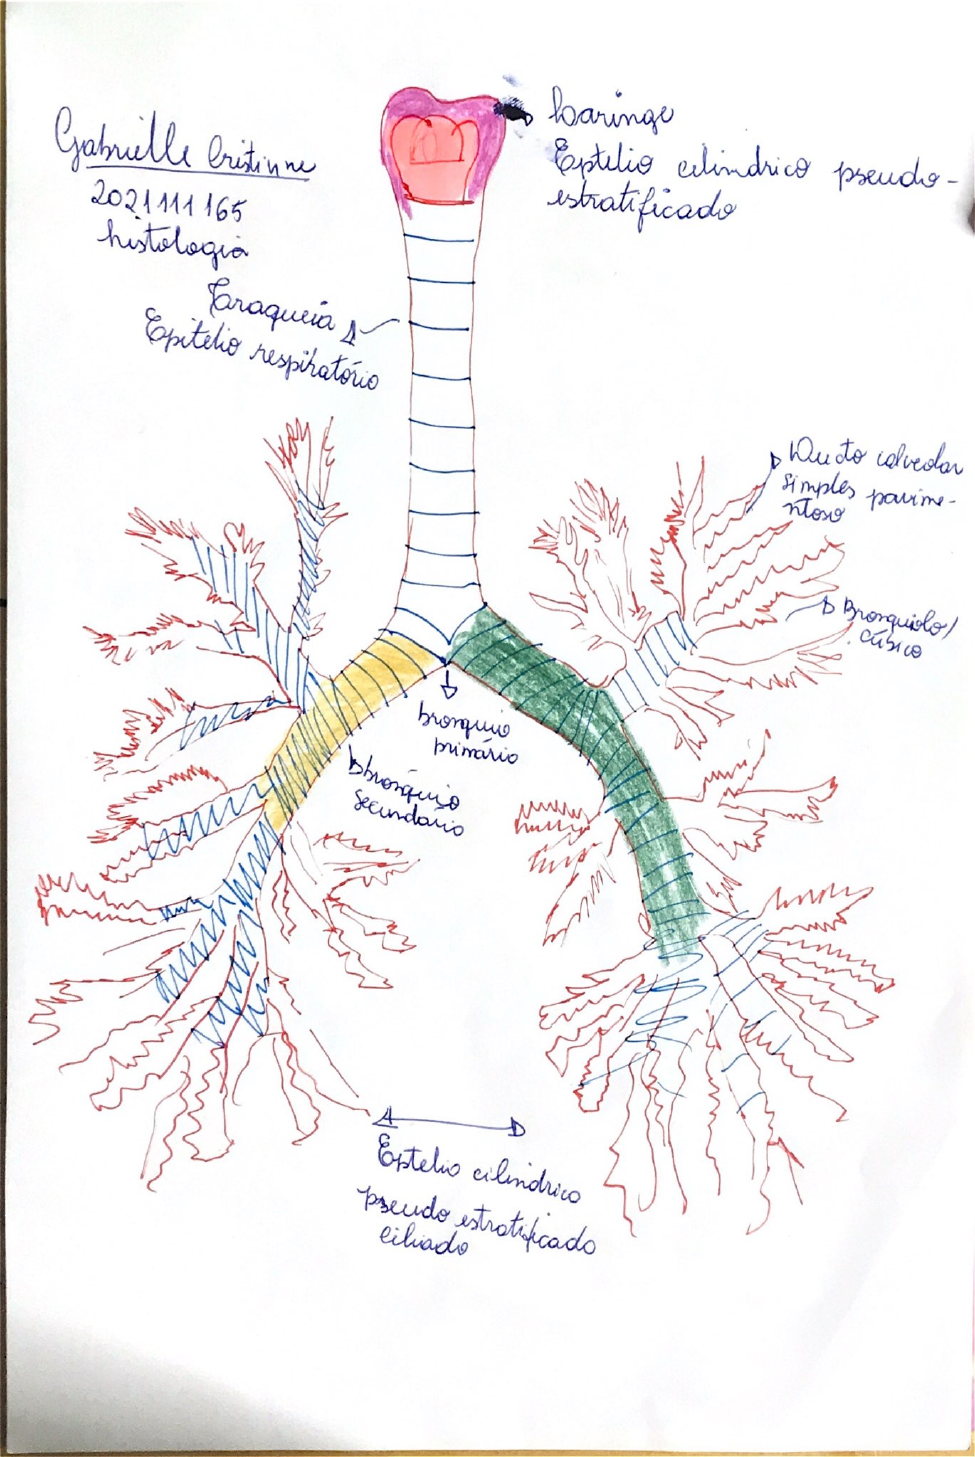 Gabrielle Cristinne
2021111165
histologia
Laringe
Eptelio cilindrico pseudo-
estratificado
Traqueia
Epitelio respiratório
Ducto alveolar
simples pavime-
ntoso
Bronquiolo/
cúbico
bronquio
primário
bronquio
secundario
Eptelio cilindrico
pseudo estratificado
Ciliado